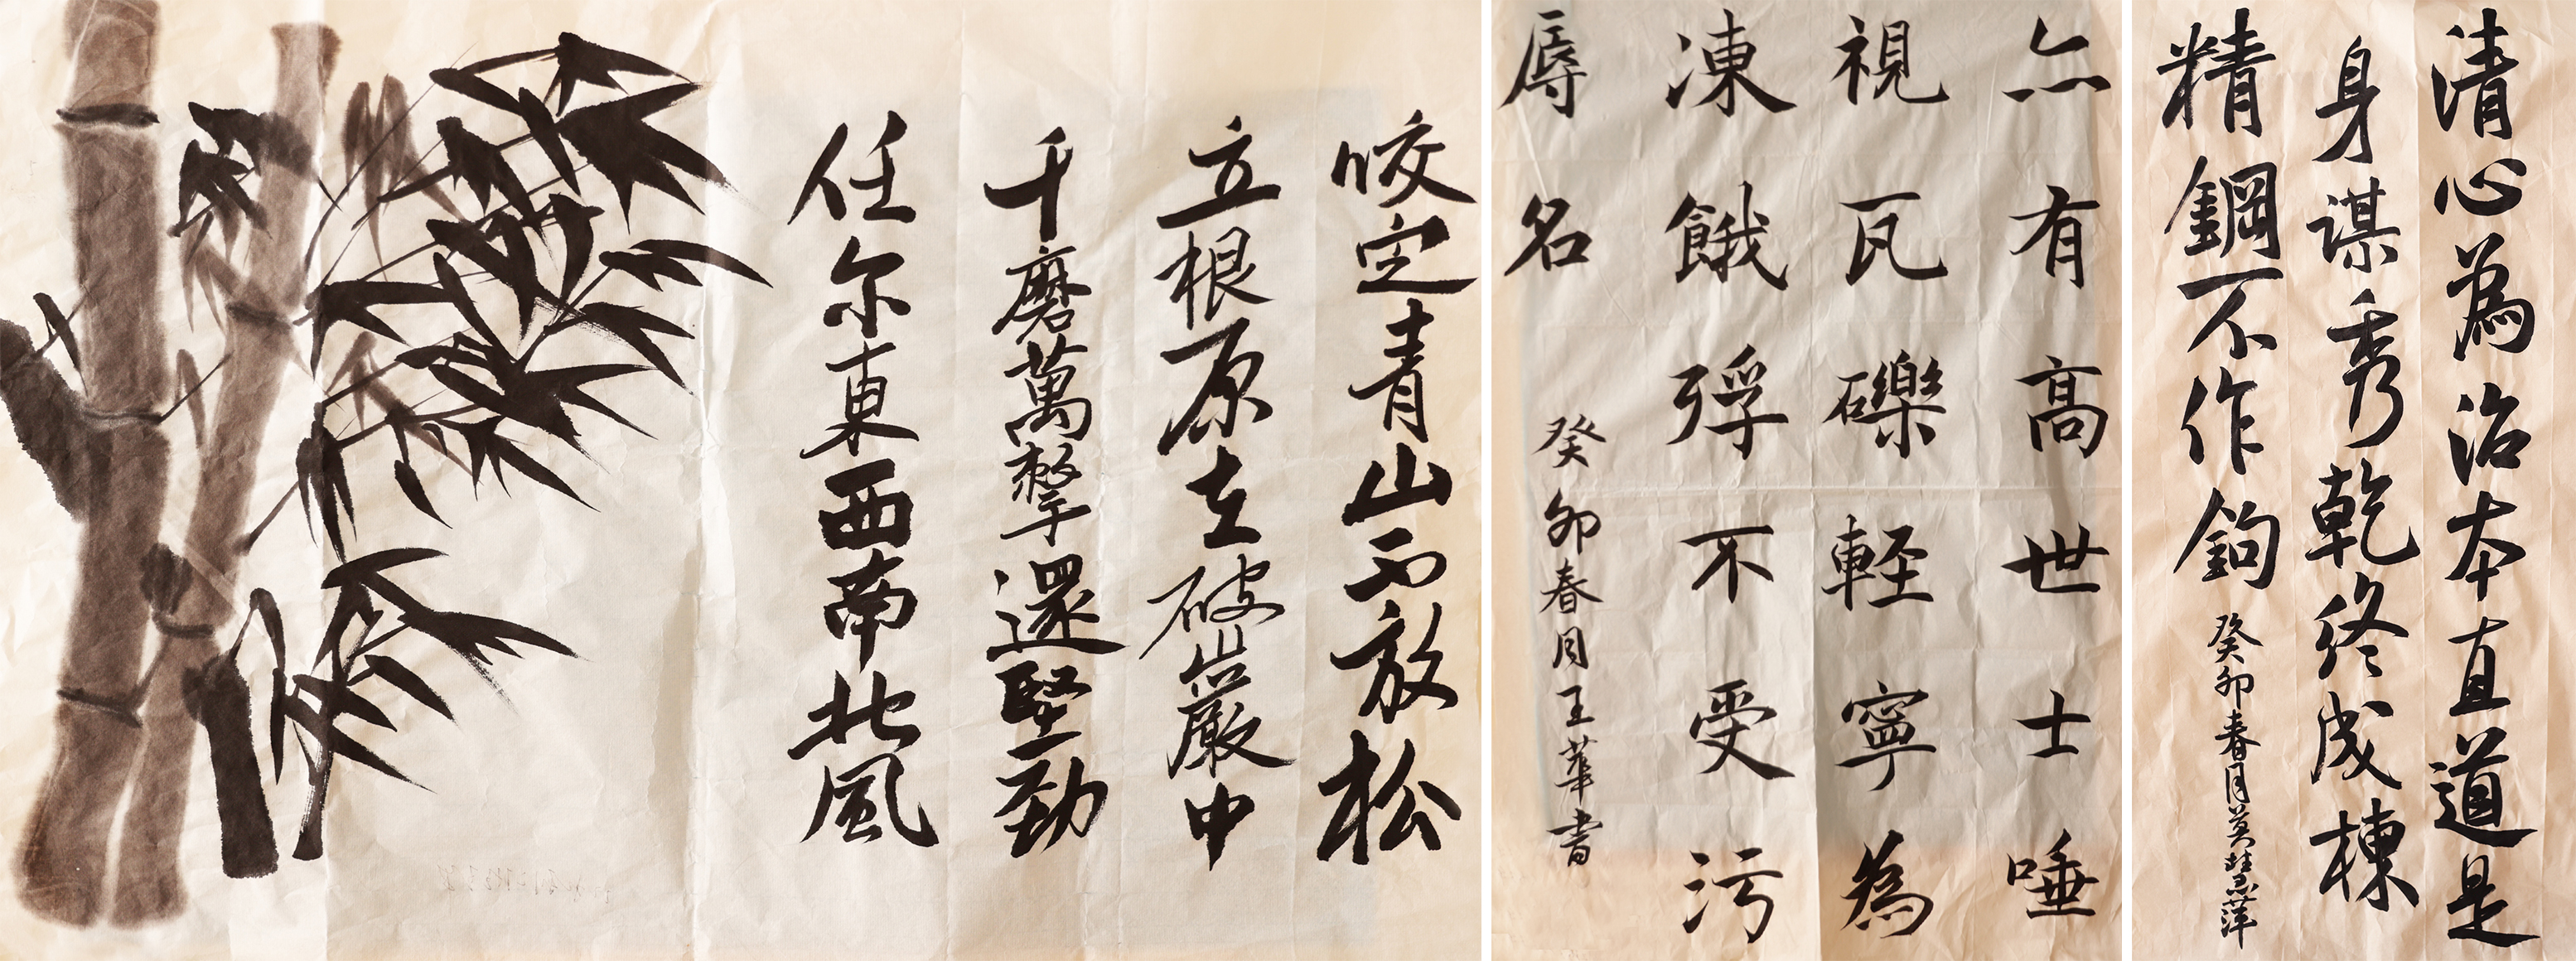 咬定青山不放松
立根原在破巖中
千磨萬擊還堅勁
任尔東西南北風
亦有高世士唾
視瓦礫輕寧為
凍餓殍不受污
辱名
癸卯春月王華書
清心為治本直道是
身謀秀乾終成棟
精鋼不作鉤
癸卯春月莫慧萍